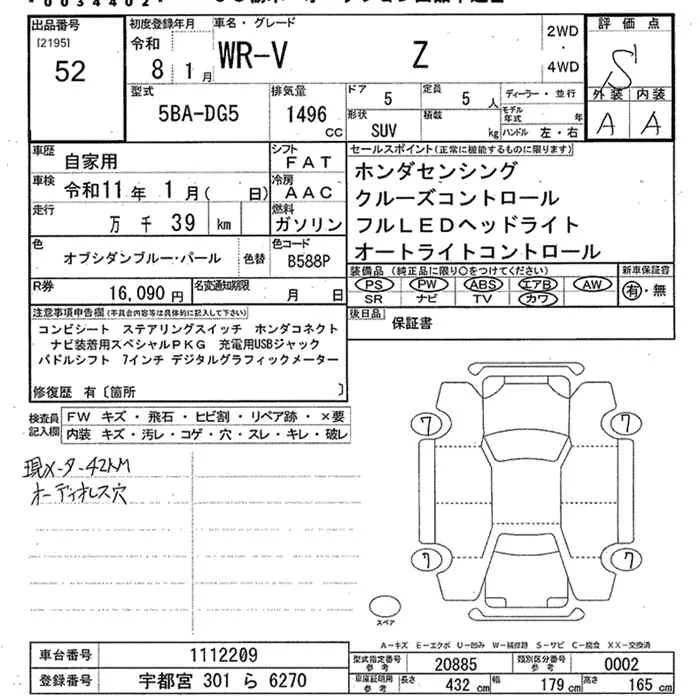 0034402
出品番号
[2195]
52
初度登録年月
令和
8 1月
車名・グレード
WR-V Z
2WD
・
4WD
評価点
S
外装 内装
A A
型式
5BA-DG5
排気量
1496
CC
ドア
5
定員
5 人
形状
SUV
積載
kg
ディーラー・並行
モデル年式 年
ハンドル 左・右
車歴
自家用
シフト
FAT
車検
令和11年 1月( 日)
冷房
AAC
走行
万 千 39 km
燃料
ガソリン
色
オブシダンブルー・パール
色替
色コード
B588P
R券
16,090円
名変通知期限
月 日
セールスポイント(正常に機能するものに限ります)
ホンダセンシング
クルーズコントロール
フルLEDヘッドライト
オートライトコントロール
装備品(純正品に限り○をつけてください)
PS PW ABS エアB AW
SR ナビ TV カワ
新車保証書
有・無
後日品
保証書
注意事項申告欄(不具合内容等は具体的に記入して下さい)
コンビシート ステアリングスイッチ ホンダコネクト
ナビ装着用スペシャルPKG 充電用USBジャック
パドルシフト 7インチ デジタルグラフィックメーター
修復歴 有〔箇所 〕
検査員記入欄
FW キズ・飛石・ヒビ割・リペア跡・×要
内装 キズ・汚レ・コゲ・穴・スレ・キレ・破レ
現メーター42KM
オーディオレス穴
7 7
7 7
スペア
A-キズ E-エクボ U-凹み W-補修跡 S-サビ C-腐食 XX-交換済
車台番号
1112209
登録番号
宇都宮 301 ら 6270
型式指定番号
参考
20885
類別区分番号
参考
0002
車庫証明用
参考
長さ
432 cm
幅
179 cm
高さ
165 cm